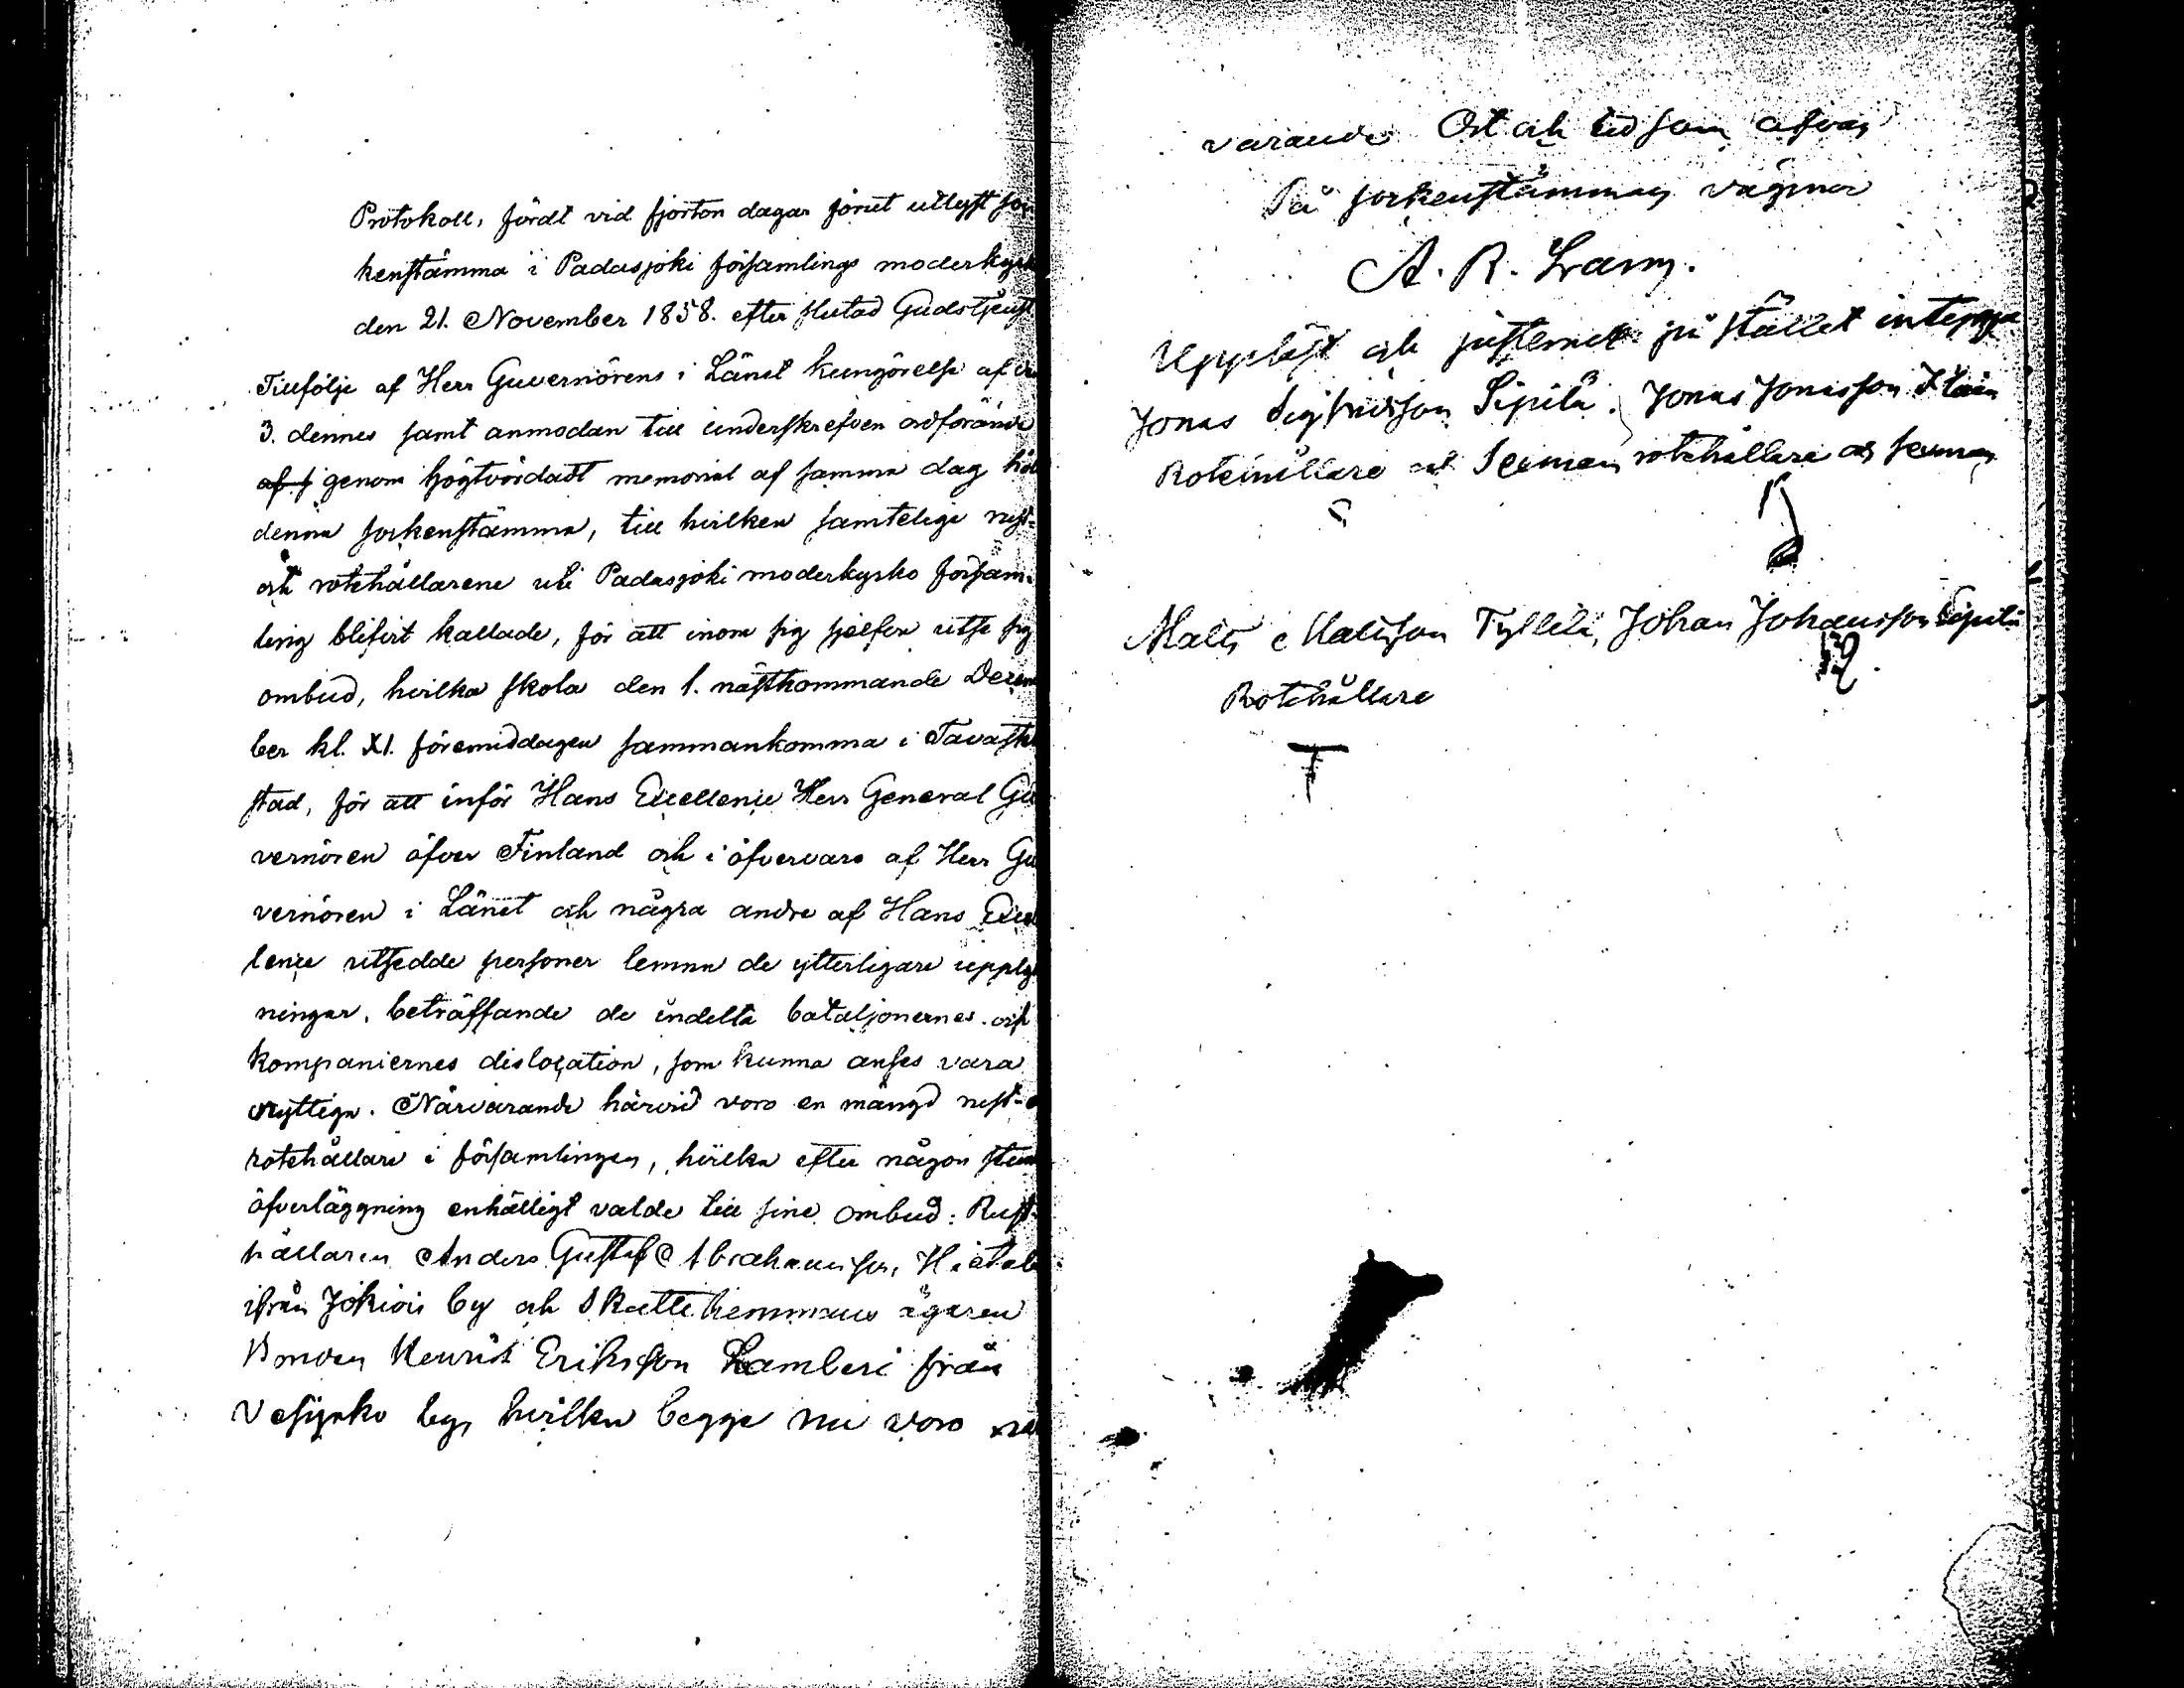 Protokoll, fördt vid fjorton dagar förut utlyst soc
kenstämma i Padasjoki församlings moderkyrk
den 21. November 1858. efter slutad Gudstjenst
Tillfölje af Herr Guvernörens i Länet kungörelse af den
3. dennes samt anmodan till underskrefven ordförande
af f genom högtvördadt memorial af samma dag höll
denna sockenstämma, till hvilken samtelige rust-
och rotehållarene uti Padasjoki moderkyrko försam-
ling blifvit kallade, för att inom sig sjelfva utse sig
ombud, hvilka skola den 1. nästkommande Decem
ber kl. XI. föremiddagen sammankomma i Tavasteh
stad, för att inför Hans Excellence Herr General Gu
vernören öfver Finland och i öfvervaro af Herr Gu
vernören i Länet och några andre af Hans Excel
lence utsedde personer lemna de ytterligare upplys
ningar, beträffande de indelta bataljonernes och
kompaniernes dislocation, som kunna anses vara
nyttiga. Närvarande härvid voro en mängd rust- o
rotehållare i församlingen, hvilka efter någon stun
öfverläggning enhälligt valde till sine ombud: Rust-
hållaren Anders Gustaf Abrahamsson Hietala
ifrån Jokiois by och Skattehemmans ägaren
Bonden Henrik Eriksson Lamberi från
Vesijako by, hvilka begge nu voro när
varande Ort och tid som ofvan
På sockenstämmans vägnar
A. R.
Uppläst och justeradt på stället intyga
Jonas Sigfridsson Sipilä. Jonas Jonasson
Rotehållare och Sexman rotehållare och sexman
Matts Mattsson Tyllilä, Johan Johansson Sipilä
Rotehållare